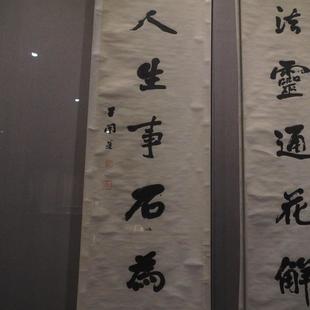 法靈通花解
人生事石為